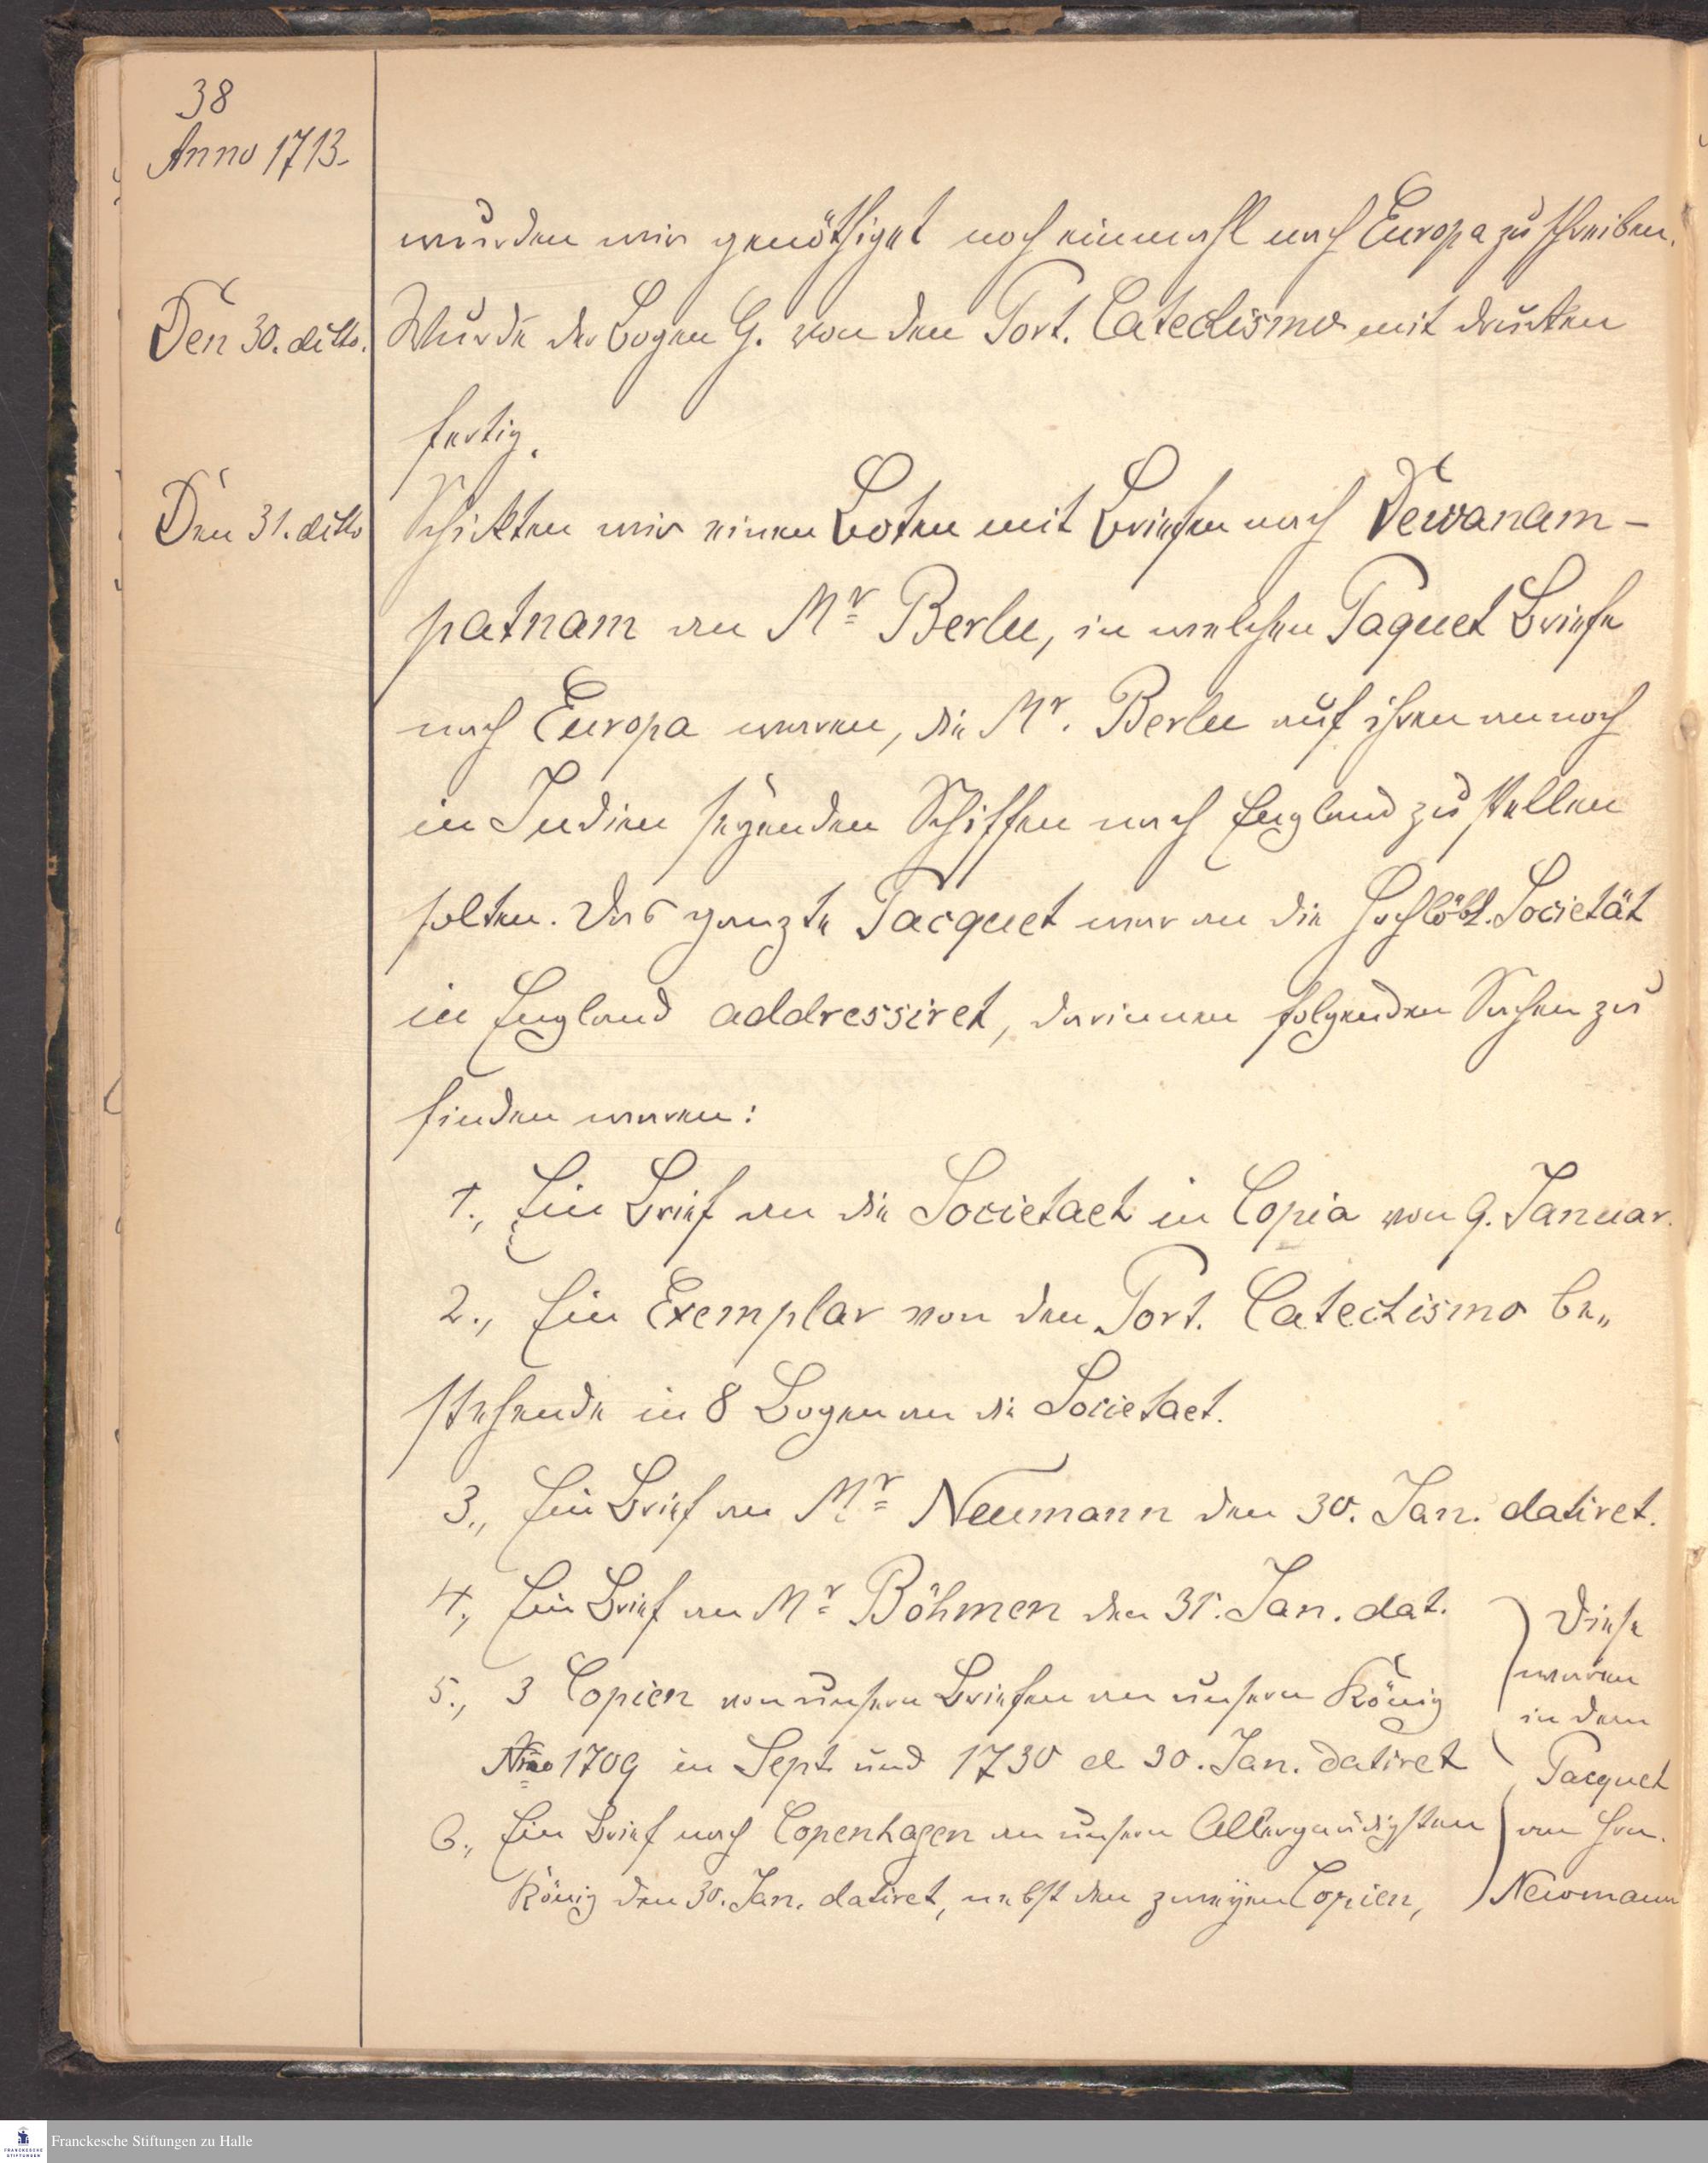 38
Anno 1713.
wurden wir genöthiget noch einmahl nach Europa zu schreiben.
Den 30. ditto.
Wurde der Bogen G. von den Port. Catechismo mit drucken
fertig.
Den 31. ditto
Schickten wir einen Boten mit Briefen nach Dewanam-
patnam an Mr Berlu, in welchen Paquet Briefe
nach Europa waren, die Mr. Berlu auf ihren annoch
in Indien seyenden Schiffen nach England zu stellen
solten. Das ganzte Pacquet war an die Hochlöbl. Societät
in England addressiret, darinnen folgenden Sachen zu
finden waren:
1., Ein Brief an die Societaet in Copia von 9. Januar.
2., Ein Exemplar von den Port. Catechismo be„
stehende in 8 Bogen an die Societaet.
3., Ein Brief an Mr Neumann den 30. Jan. datiret.
4., Ein Brief an Mr Böhmen den 31. Jan. dat.
5., 3 Copien von unsern Briefen an unsern König
Ano 1709 in Sept. und 1730 d. 30. Jan. datiret
6., Ein Brief nach Copenhagen an unsern Allergnädigsten
König den 30. Jan. datiret, nebst den zweyen Copien,
Diese
waren
in dem
Pacquet
an Hrn.
Newmann
Franckesche Stiftungen zu Halle